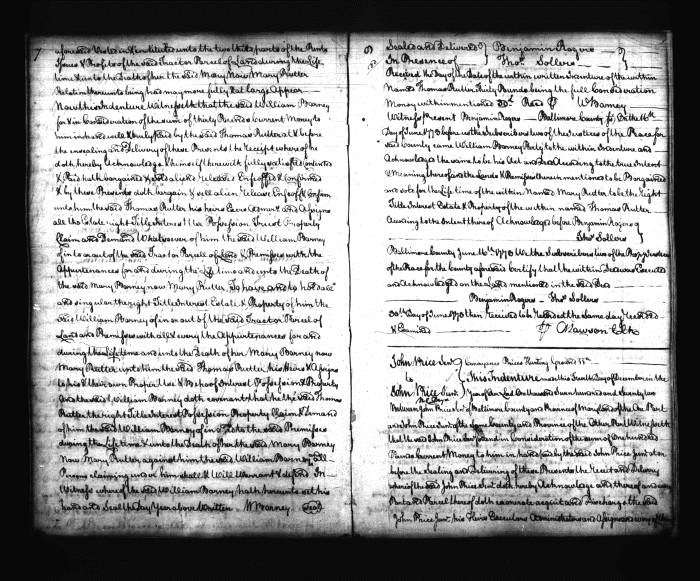 7
aforesaid Vested in & instituted unto the two third parts of the Rents
Issues & Profits of the said Tract or Parcel of Land during the life
time & unto the Death of her the said Mary Now Mary Rutter
Relation thereunto being had may more fully & at large Appear
Now this Indenture Witnesseth that the said William Barney
for & in Consideration of the sum of thirty Pounds Current Money to
him in hand well & truly paid by the said Thomas Rutter at & before
the ensealing and Delivery of these Presents the Receipt whereof he
doth hereby Acknowledge & himself therewith fully satisfied Contented
& Paid hath bargained & sold aliened released Enfeoffed & Confirmed
& by these Presents doth bargain & sell alien release Enfeoff & Confirm
unto him the said Thomas Rutter his heirs Exors Admrs and Assigns
all the Estate right Title Interest Use Possession Trust Property
Claim and Demand Whatsoever of him the said William Barney
of in to or out of the said Tract or Parcel of Land & Premises with the
Appurtenances for and during the Life time and unto the Death of
the said Mary Barney now Mary Rutter To have and to hold all
and singular the right Title Interest Estate & Property of him the
said William Barney of in or out of the said Tract or Parcel of
Land and Premises with all & every the Appurtenances for and
during the Lifetime and unto the Death of her Mary Barney now
Mary Rutter unto him the said Thomas Rutter his Heirs & Assigns
to his & their own Proper Use & Behoof Interest Possession & Property
And the said William Barney doth covenant that he the said Thomas
Rutter the right Title Interest Possession Property Claim & Demand
of him the said William Barney of in or to the said Premises
during the Lifetime & unto the Death of her the said Mary Barney
Now Mary Rutter against him the said William Barney all
Persons claiming under him shall & Will Warrant & defend In
Witness whereof the said William Barney hath hereunto set his
hand and Seal the Day & Year above Written W Barney Seal
Sealed and Delivered } Benjamin Rogers }
In Presence of } Thos. Sollers }
Received the Day of the Date of the within written Indenture of the within
Named Thomas Rutter thirty Pounds being the full Consideration
Money within mentioned Recd W Barney
Witness Present Benjamin Rogers Baltimore County On the 16th
Day of June 1770 before us the Subscribers two of the Justices of the Peace for
said County came William Barney Party to the within Indenture and
Acknowledged the same to be his Act and Deed According to the true Intent
& Meaning thereof and the Lands & Premises therein mentioned to be Bargained
and sold for the Life time of the within Named Mary Rutter to be the Right
Title Interest Estate & Property of the within named Thomas Rutter
According to the Intent thereof Acknowledged before Benjamin Rogers }
Thos Sollers }
Baltimore County June 16th 1770 We the Subscribers two of the
of the Peace for the County aforesaid Certify that the within Deed was Executed
and Acknowledged on the Land mentioned in the said Deed
Benjamin Rogers Thos Sollers
30th Day of June 1770 then received to be Recorded the same day Recorded
& Examined A Lawson Clk
John Price Senr } Conveyance Prices Hunting Ground
to } This Indenture made this Day of December in the
John Price Junr } Year of our Lord One thousand seven hundred and
Between John Price Senr of Baltimore County and Province of Maryland of the One Part
and John Price Junr of the same County and Province of the Other Part Witnesseth
that the said John Price Senr for and in Consideration of the sum of One hundred
Pounds current Money to him in hand paid by the said John Price Junr at or
before the Sealing and Delivering of these Presents the Receipt and Delivery
whereof the said John Price Senr doth hereby Acknowledge and thereof and every
Part and Parcel thereof doth exonerate acquit and Discharge the said
John Price Junr his Heirs Executors Administrators and Assigns and every of them